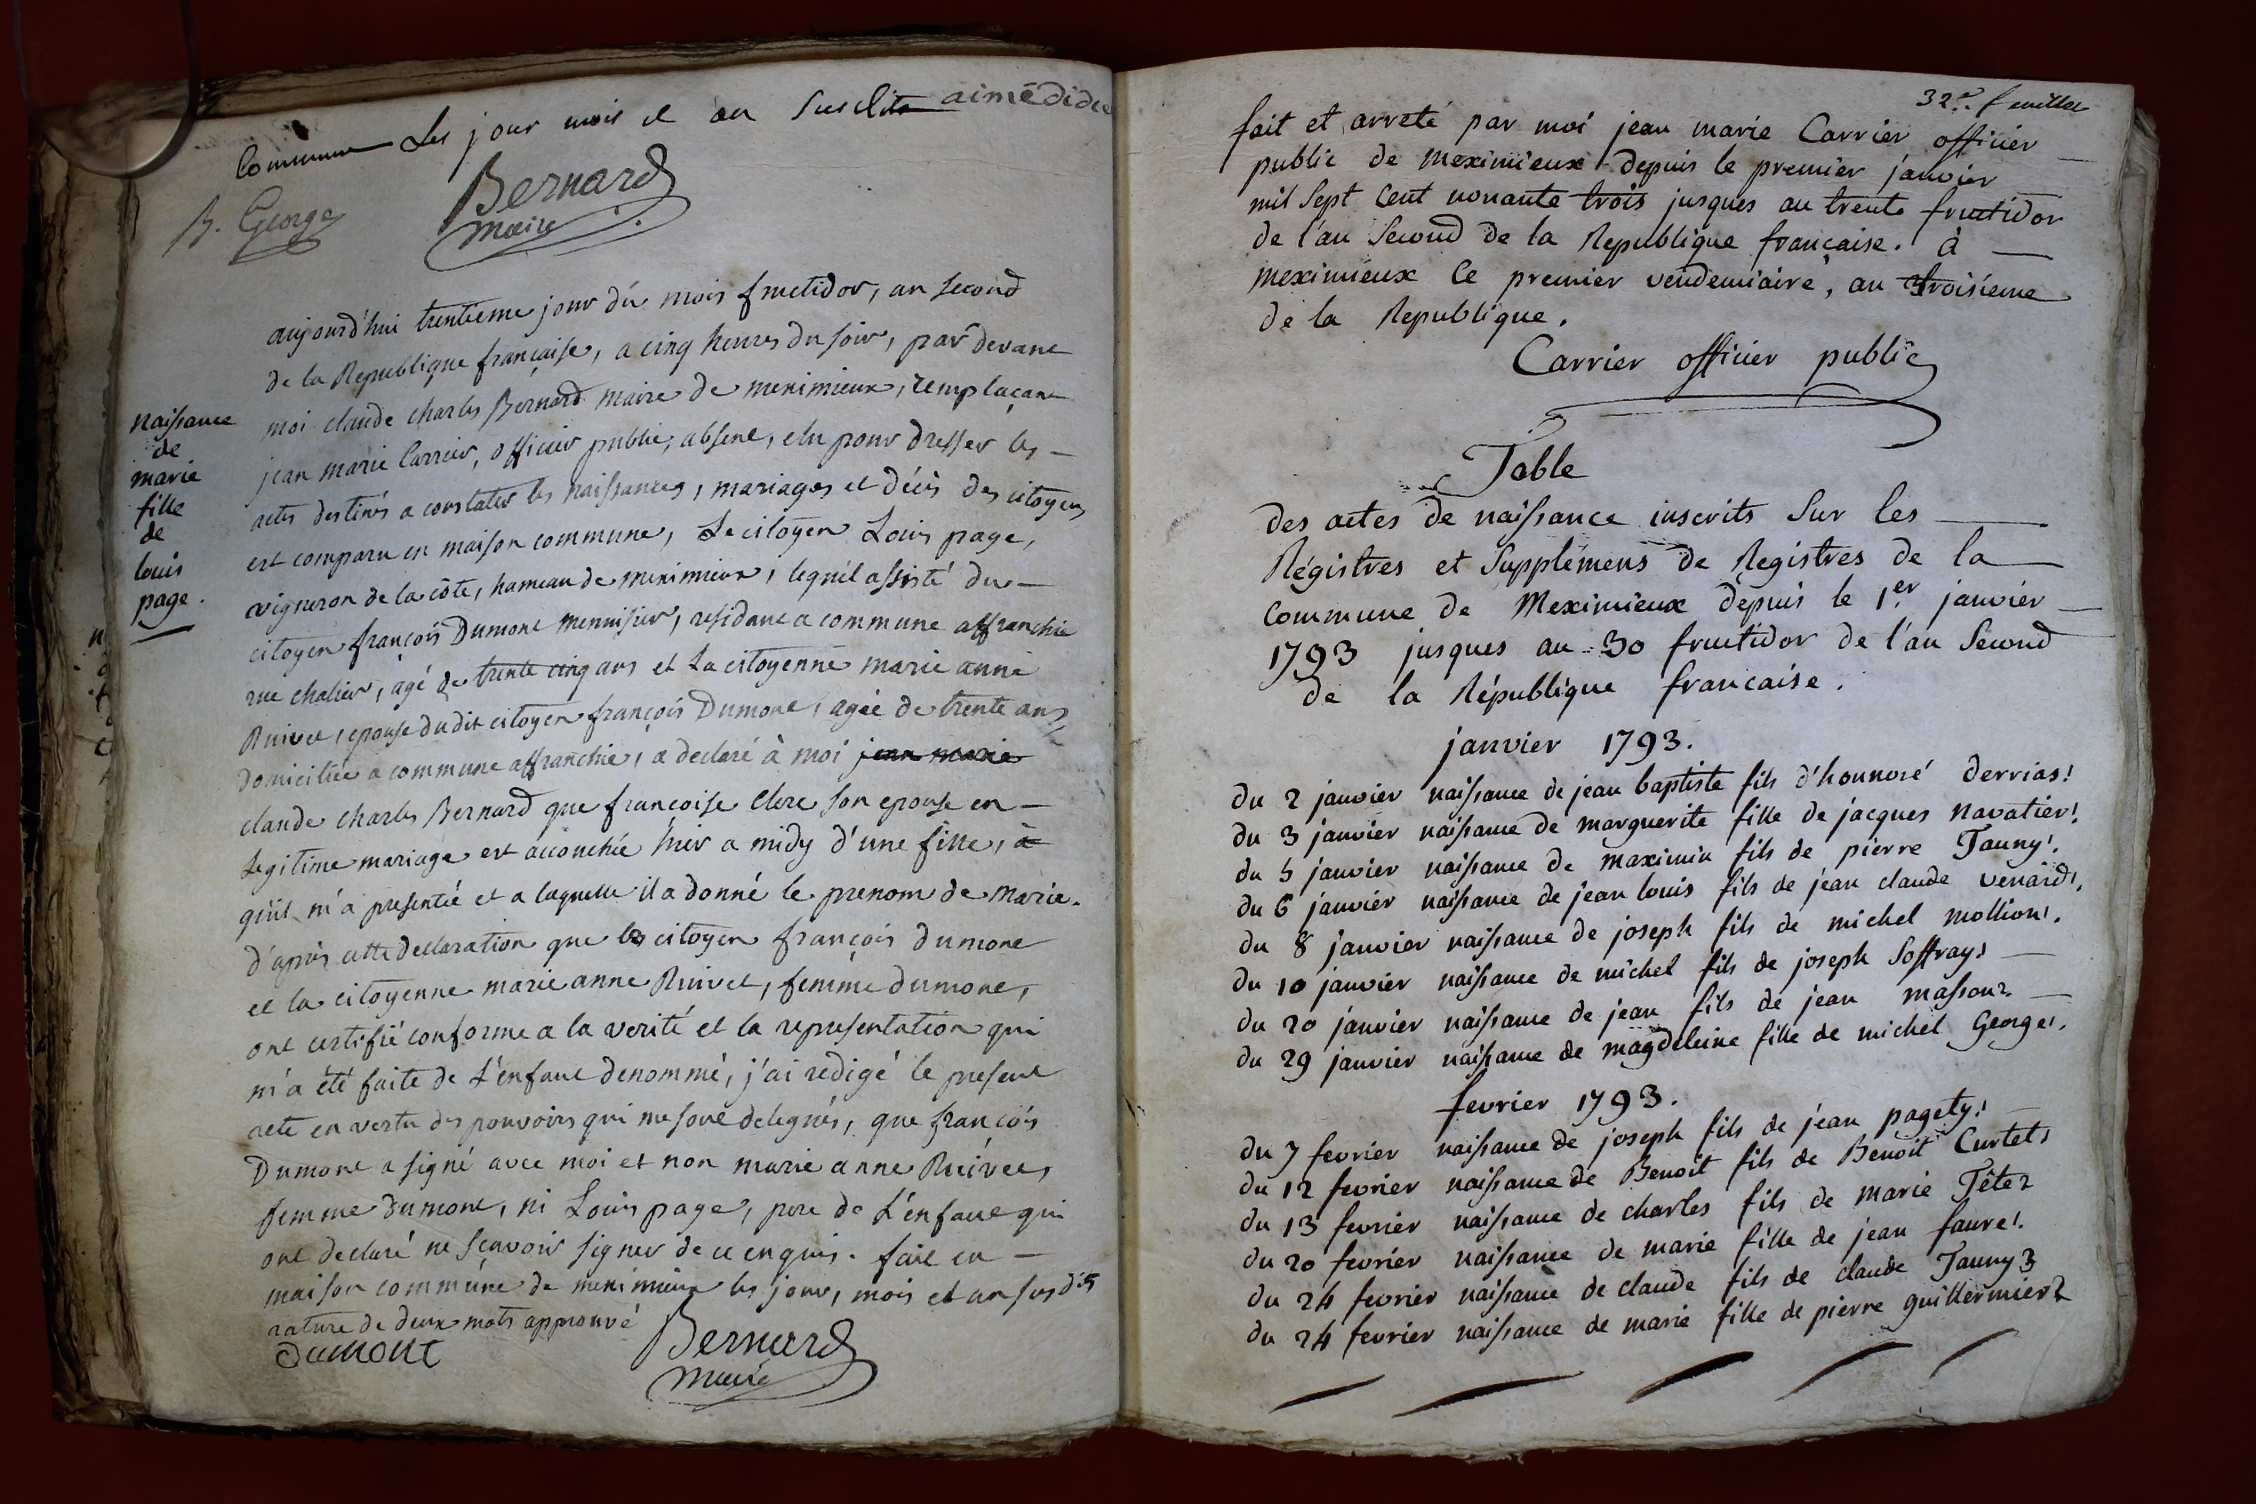 commune Les jour mois et an Susdits aimé didie
B. George Bernard
maire
aujourd'hui trentieme jour du mois fructidor, an second
de la Republique française, a cinq heures du soir, par devant
moi claude charles Bernard maire de meximieux, remplaçant
jean marie Carrier, officier public, absent, elu pour dresser les
actes destinés a constater les naissances, mariages et décès des citoyens
est comparu en maison commune, Le citoyen Louis page,
vigneron de la côte, hameau de meximieux, lequel assisté du
citoyen françois Dumont menuisier, residant a commune affranchie
rue chalier, agé de trente cinq ans et La citoyenne marie anne
Ruivet, epouse dudit citoyen françois Dumont, agée de trente ans,
domiciliée a commune affranchie, a declaré à moi jean marie
claude charles Bernard que françoise clerc son epouse en
Legitime mariage est accouchée hier a midy d'une fille, à
qu'il m'a presentée et a laquelle il a donné le prenom de Marie.
d'après cette declaration que le citoyen françois dumont
et la citoyenne marie anne Ruivet, femme dumont,
ont certifié conforme a la verité et la representation qui
m'a été faite de L'enfant denommé, j'ai redigé le present
acte en vertu des pouvoirs qui me sont delegués, que françois
Dumont a signé avec moi et non marie anne Ruivet,
femme dumont, ni Louis page, pere de L'enfant qui
ont declaré ne sçavoir signer de ce enquis. fait en
maison commune de meximieux les jour, mois et an susdits
rature de deux mots approuvé
dumont Bernard
maire
naissance
de
marie
fille
de
louis
page.
32e. feuillet
fait et arreté par moi jean marie Carrier officier
public de meximieux depuis le premier janvier
mil Sept Cent nonante trois jusques au trente fructidor
de l'an Second de la Republique francaise. à
meximieux Ce premier vendemiaire, an troisiéme
de la Republique.
Carrier officier public
Table
des actes de naissance inscrits Sur les
Régistres et Supplémens de Registres de la
Commune de Meximieux depuis le 1er janvier
1793 jusques au 30 fructidor de l'an Second
de la République francaise.
janvier 1793.
du 2 janvier naissance de jean baptiste fils d'honnoré derrias!
du 3 janvier naissance de marguerite fille de jacques navatier!
du 5 janvier naissance de maximin fils de pierre Tauny!
du 6 janvier naissance de jean louis fils de jean claude venard!
du 8 janvier naissance de joseph fils de michel mollion!
du 10 janvier naissance de michel fils de joseph Soffray!
du 20 janvier naissance de jean fils de jean masson 2
du 29 janvier naissance de magdeleine fille de michel George!
fevrier 1793.
du 7 fevrier naissance de joseph fils de jean pagety!
du 12 fevrier naissance de Benoit fils de Benoit Curtet!
du 13 fevrier naissance de charles fils de marie Tête 2
du 20 fevrier naissance de marie fille de jean faure!
du 24 fevrier naissance de claude fils de claude Tauny 3
du 24 fevrier naissance de marie fille de pierre guillermier 2